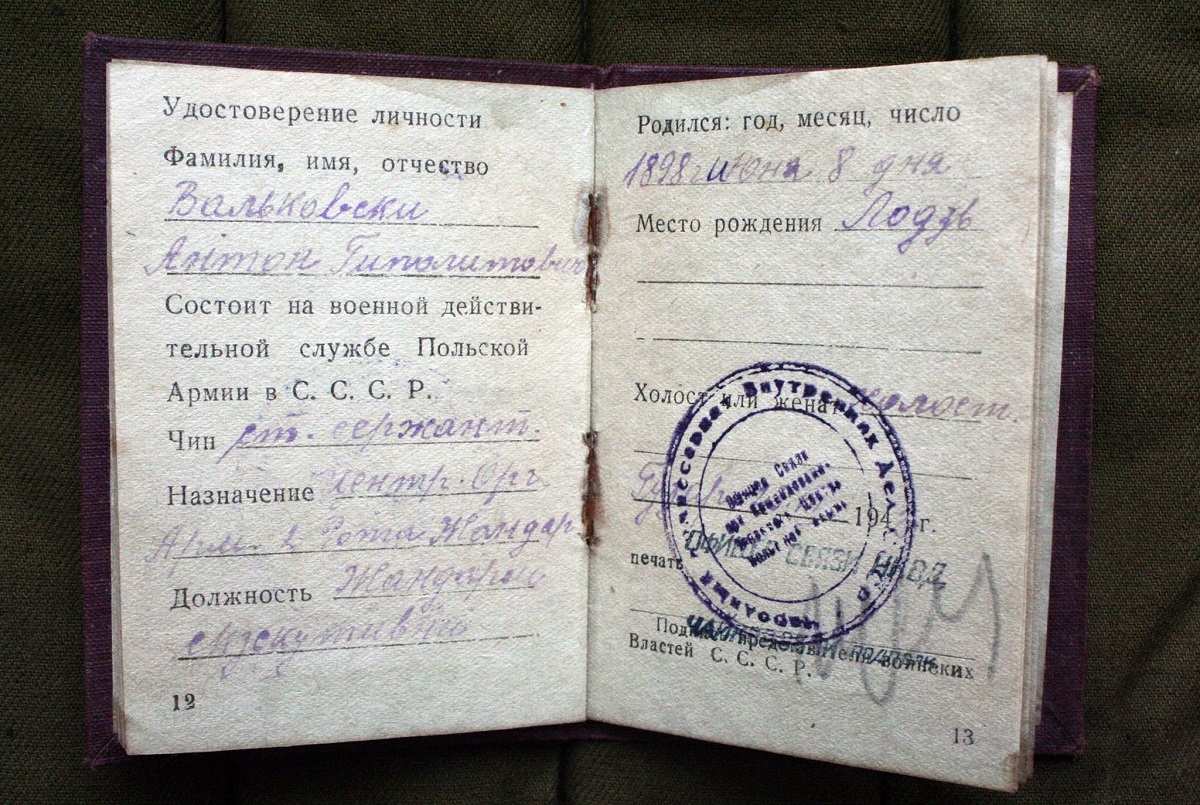 Удостоверение личности
Фамилия, имя, отчество
Вальковски
Антон Гиполитович
Состоит на военной действи-
тельной службе Польской
Армии в С. С. С. Р.
Чин ст. сержант.
Назначение Центр. Орг.
Арм. 2 Рота Жандар
Должность Жандарм
12
Родился: год, месяц, число
1898 г июня 8 дня
Место рождения Лодзь
Холост или женат холост.
194 г.
ОФИЦЕР СВЯЗИ НКВД
печать
Подпись представителя воинских
Властей С. С. С. Р.
13
Внутренних Дел
Офицер Связи